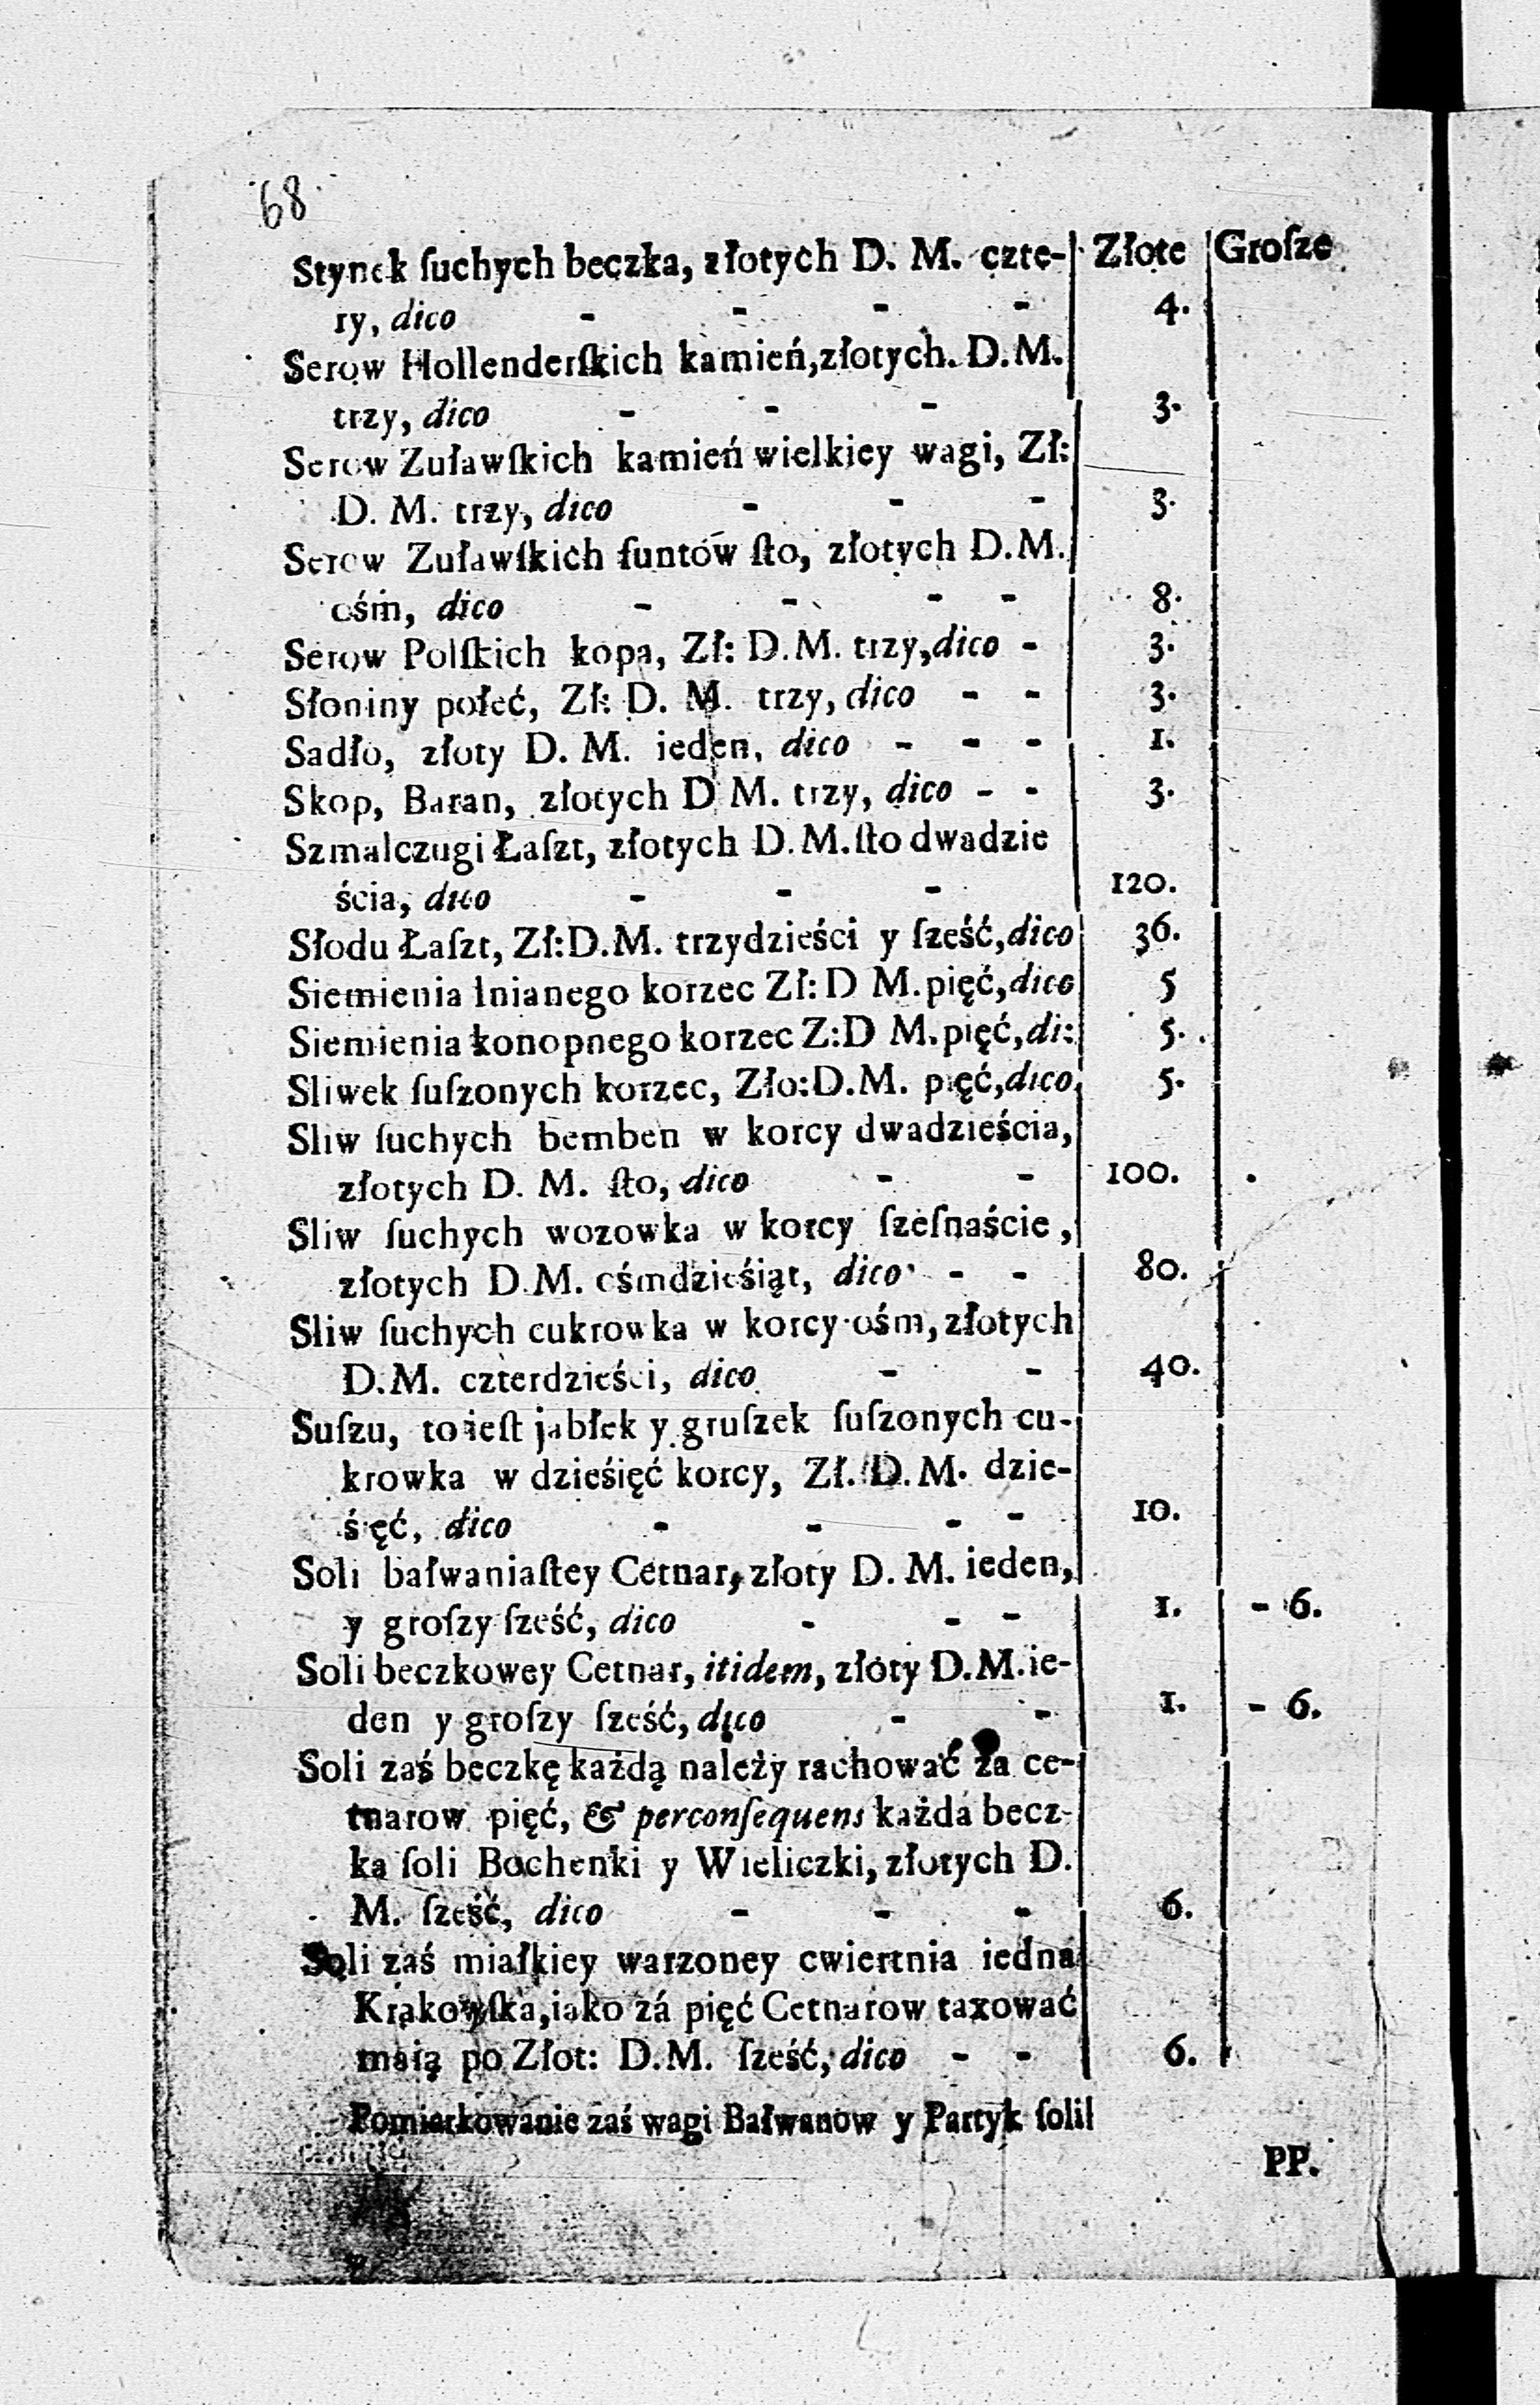 68
Stynek ſuchych beczka, złotych D. M. czte- Złote Groſze
ry, dico - - - - 4.
Serow Hollenderſkich kamień, złotych. D. M.
trzy, dico - - - 3.
Serow Zuławſkich kamień wielkiey wagi, Zł:
D. M. trzy, dico - - - 3.
Serow Zuławſkich funtów ſto, złotych D.M.
ośm, dico - - - - 8.
Serow Polſkich kopa, Zł: D.M. trzy, dico - 3.
Słoniny połeć, Zł: D. M. trzy, dico - - 3.
Sadło, złoty D. M. ieden, dico - - - 1.
Skop, Baran, złotych D M. trzy, dico - - 3.
Szmalczugi Łaſzt, złotych D. M. ſto dwadzie
ścia, dico - - - 120.
Słodu Łaſzt, Zł:D.M. trzydzieści y ſześć, dico 36.
Siemienia lnianego korzec Zł: D M. pięć, dico 5
Siemienia konopnego korzec Z:D M. pięć, di: 5.
Sliwek ſuſzonych korzec, Zło:D.M. pięć, dico 5.
Sliw ſuchych bemben w korcy dwadzieścia,
złotych D. M. ſto, dico - - 100.
Sliw ſuchych wozowka w korcy ſzeſnaście,
złotych D.M. ośmdzieśiąt, dico - - 80.
Sliw ſuchych cukrowka w korcy ośm, złotych
D.M. czterdzieści, dico - - 40.
Suſzu, to ieſt jabłek y gruſzek ſuſzonych cu-
krowka w dzieśięć korcy, Zł. D. M. dzie-
śięć, dico - - - - 10.
Soli bałwaniaſtey Cetnar, złoty D. M. ieden,
y groſzy ſześć, dico - - - 1. - 6.
Soli beczkowey Cetnar, itidem, złoty D.M. ie-
den y groſzy ſześć, dico - - 1. - 6.
Soli zaś beczkę każdą należy rachować za ce-
tnarow pięć, & perconſequens każda becz-
ka ſoli Bochenki y Wieliczki, złotych D.
M. ſześć, dico - - - 6.
Soli zaś miałkiey warzoney cwiertnia iedna
Krakowſka, iako zá pięć Cetnarow taxować
maią po Złot: D.M. ſześć, dico - - 6.
Pomiarkowanie zaś wagi Bałwanow y Partyk ſoli
PP.